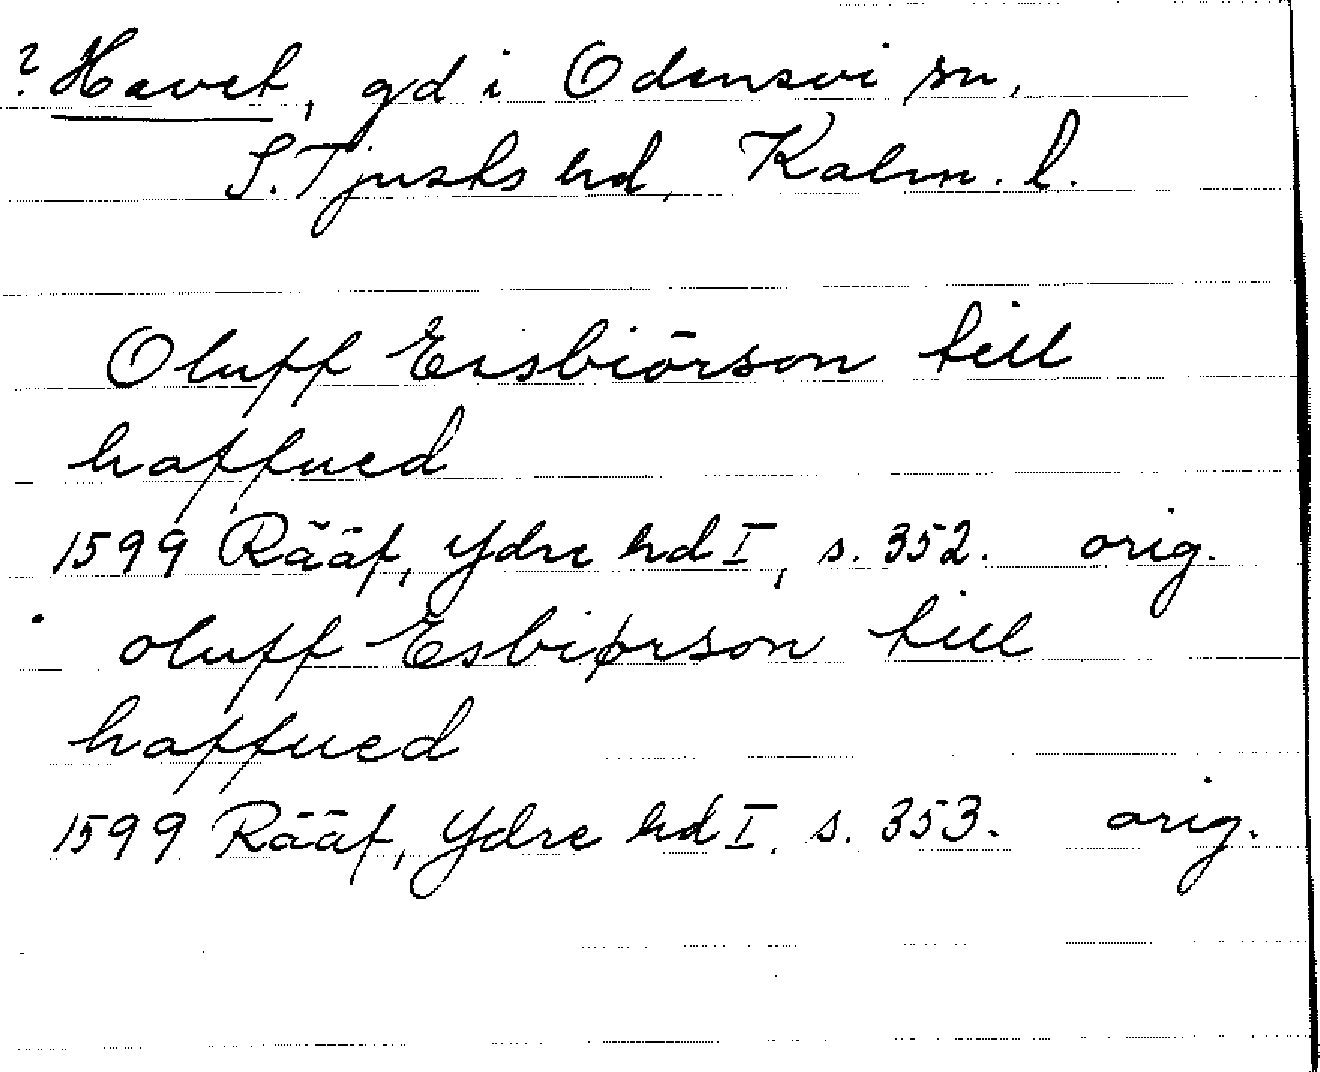 ? Havet, gd i Odensvi sn,
S. Tjusts hd, Kalm. l.
Oluff Eisbiörson till
haffued
1599 Rääf, Ydre hd I, s. 352. orig.
oluff Esbiørson till
haffued
1599 Rääf, Ydre hd I, s. 353. orig.